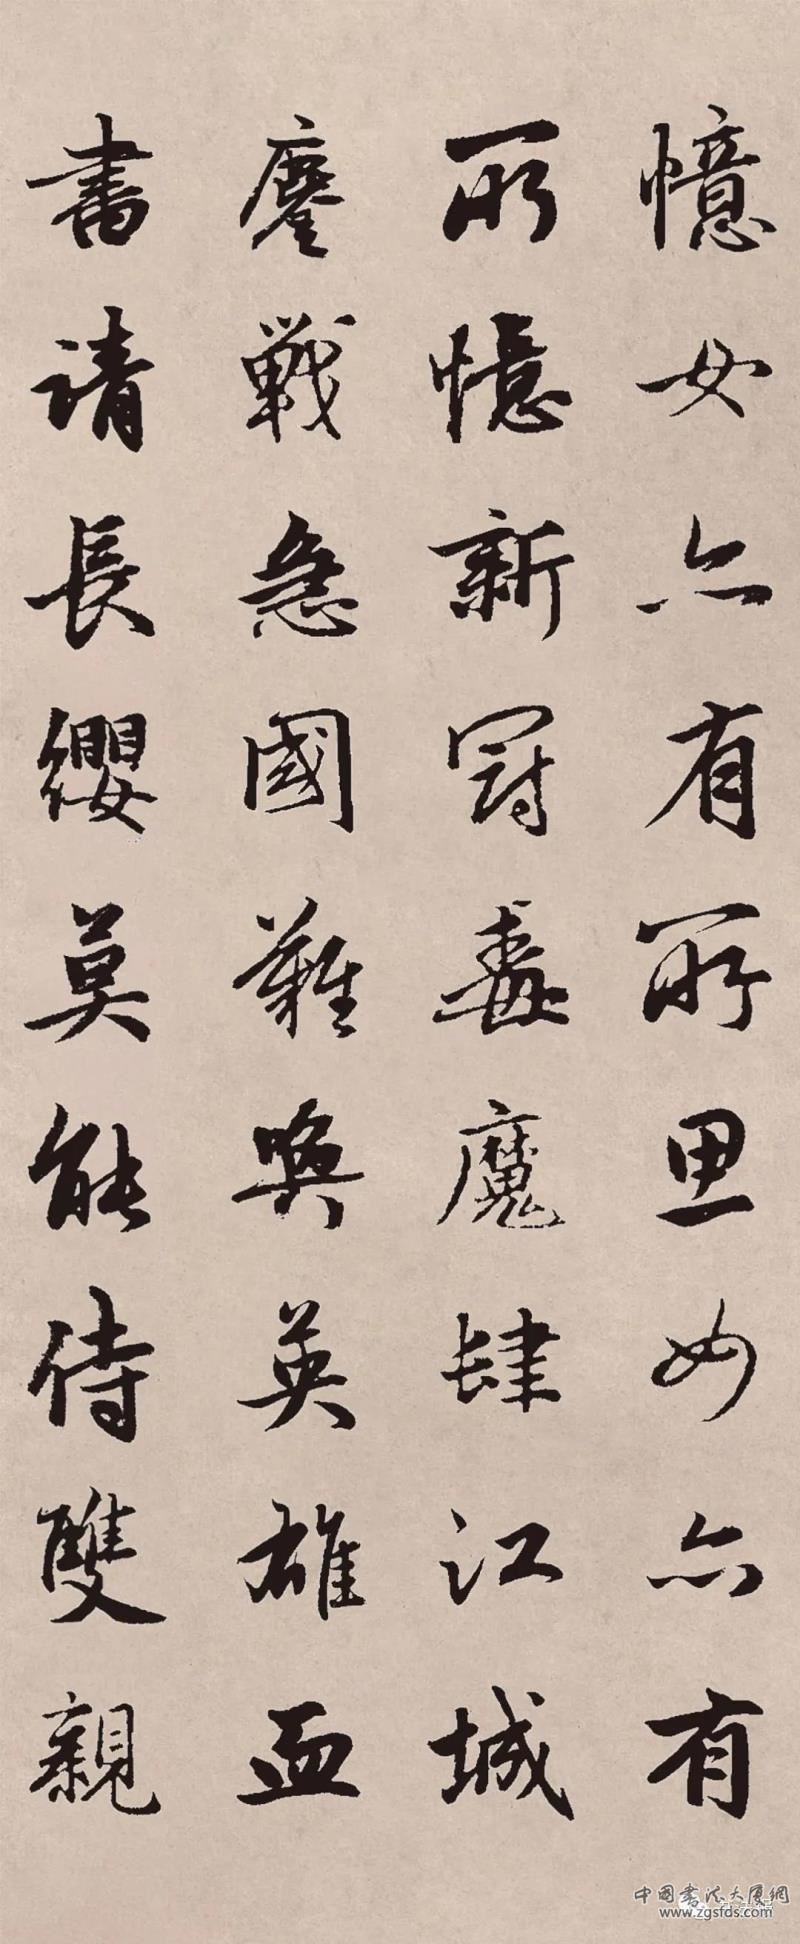 憶女亦有所思女亦有
所憶新冠毒魔肆江城
鏖戰急國難喚英雄血
書请長纓莫能侍雙親
中国书法大厦網
www.zgsfds.com